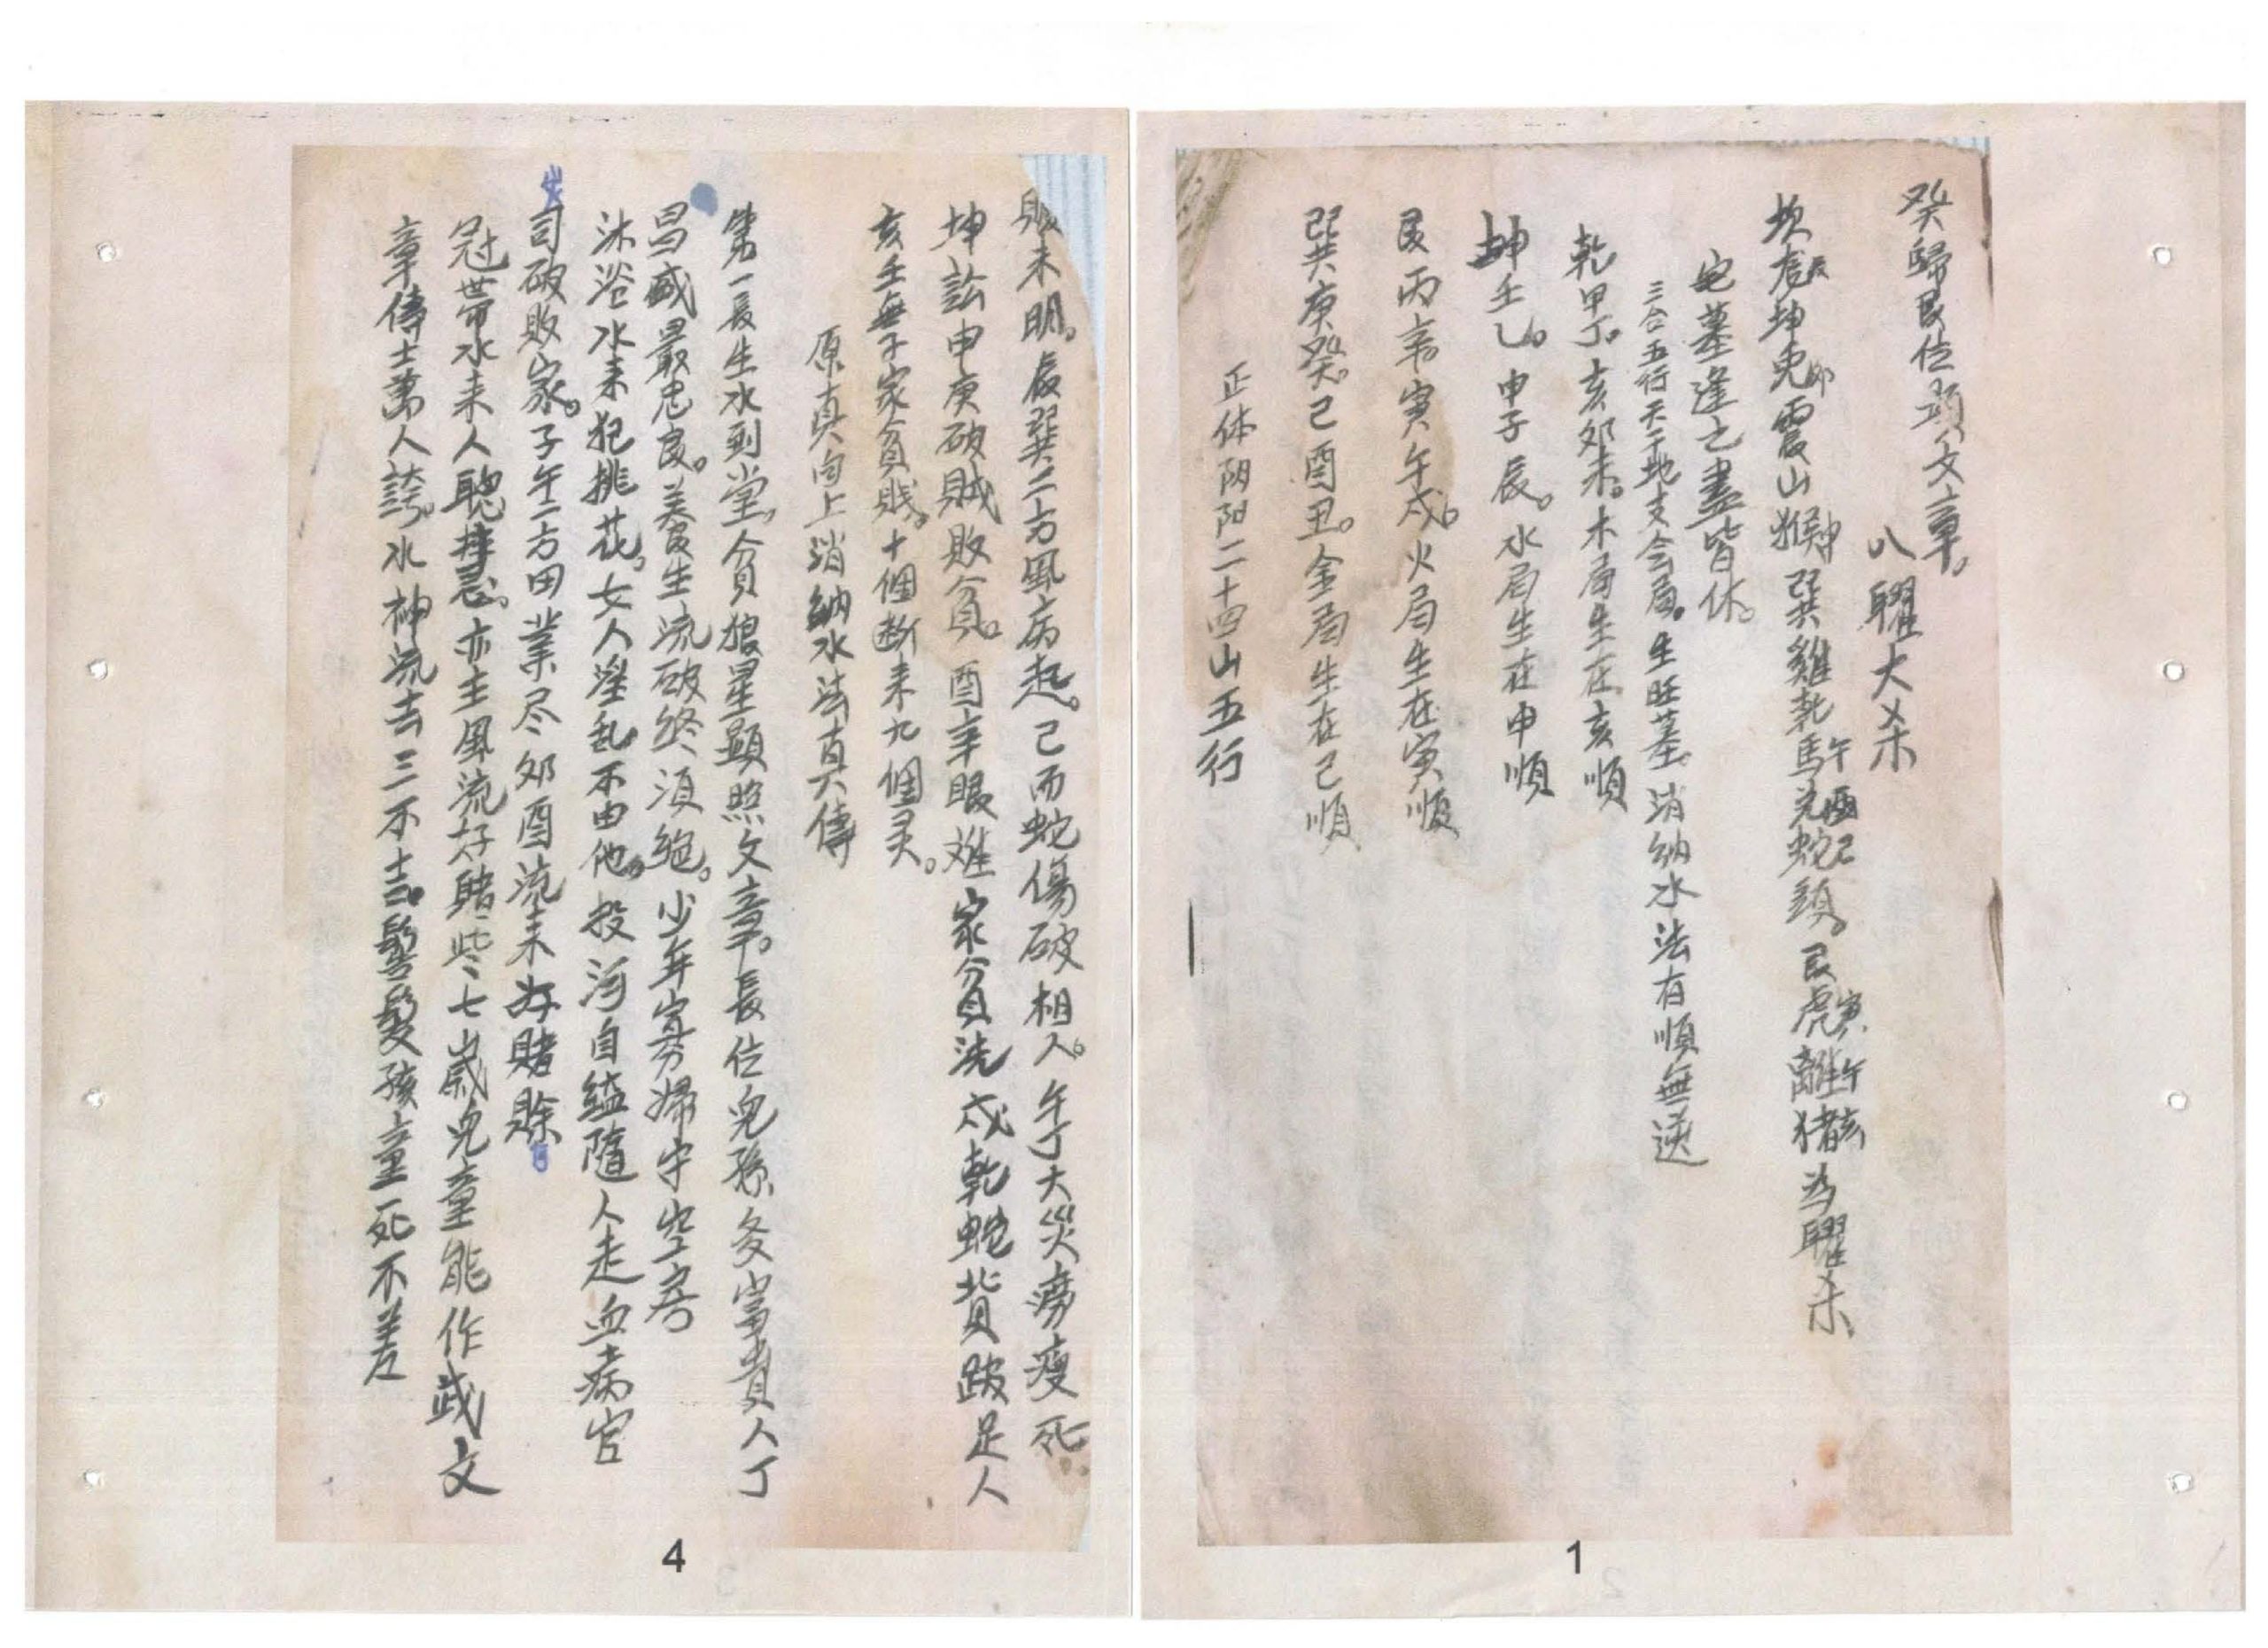 癸歸艮位顕文章。
八曜大杀
坎龙辰坤兎卯震山猴申巽雞乾馬午兑酉蛇巳頭。艮虎寅離午猪亥为曜杀
宅墓逢之盡皆休。
三合五行天干地支会局。生旺墓消纳水法有順無逆
乾甲丁。亥卯未。木局生在亥順
坤壬乙。申子辰。水局生在申順
艮丙辛。寅午戍。火局生在寅順
巽庚癸。己酉丑。金局生在己順
正体阴阳二十四山五行
1
賊未明。辰巽二方風病起。己而蛇傷破相人。午丁大災痨瘦死
坤訟申庚破賊敗貧。酉辛眼难家貧洗戍乾蛇背跛足人
亥壬無子家貧賤。十個断来九個灵。
原真向上消納水法真傳
第一長生水到堂。貪狼星顕照文章。長位兒孫多富貴人丁
昌盛最忠良。養生流破終湏絕。少年寡婦守空房
沐浴水来犯挑花。女人滛乱不由他。投河自縊隨人走血病官
司破敗家。子午二方田業尽卯酉流来好賭賒
冠帶水来人聰。亦主風流好賭些七歲兒童能作武文
章傳士萬人誇。水神流去三不吉。髫髮孩童死不差
4